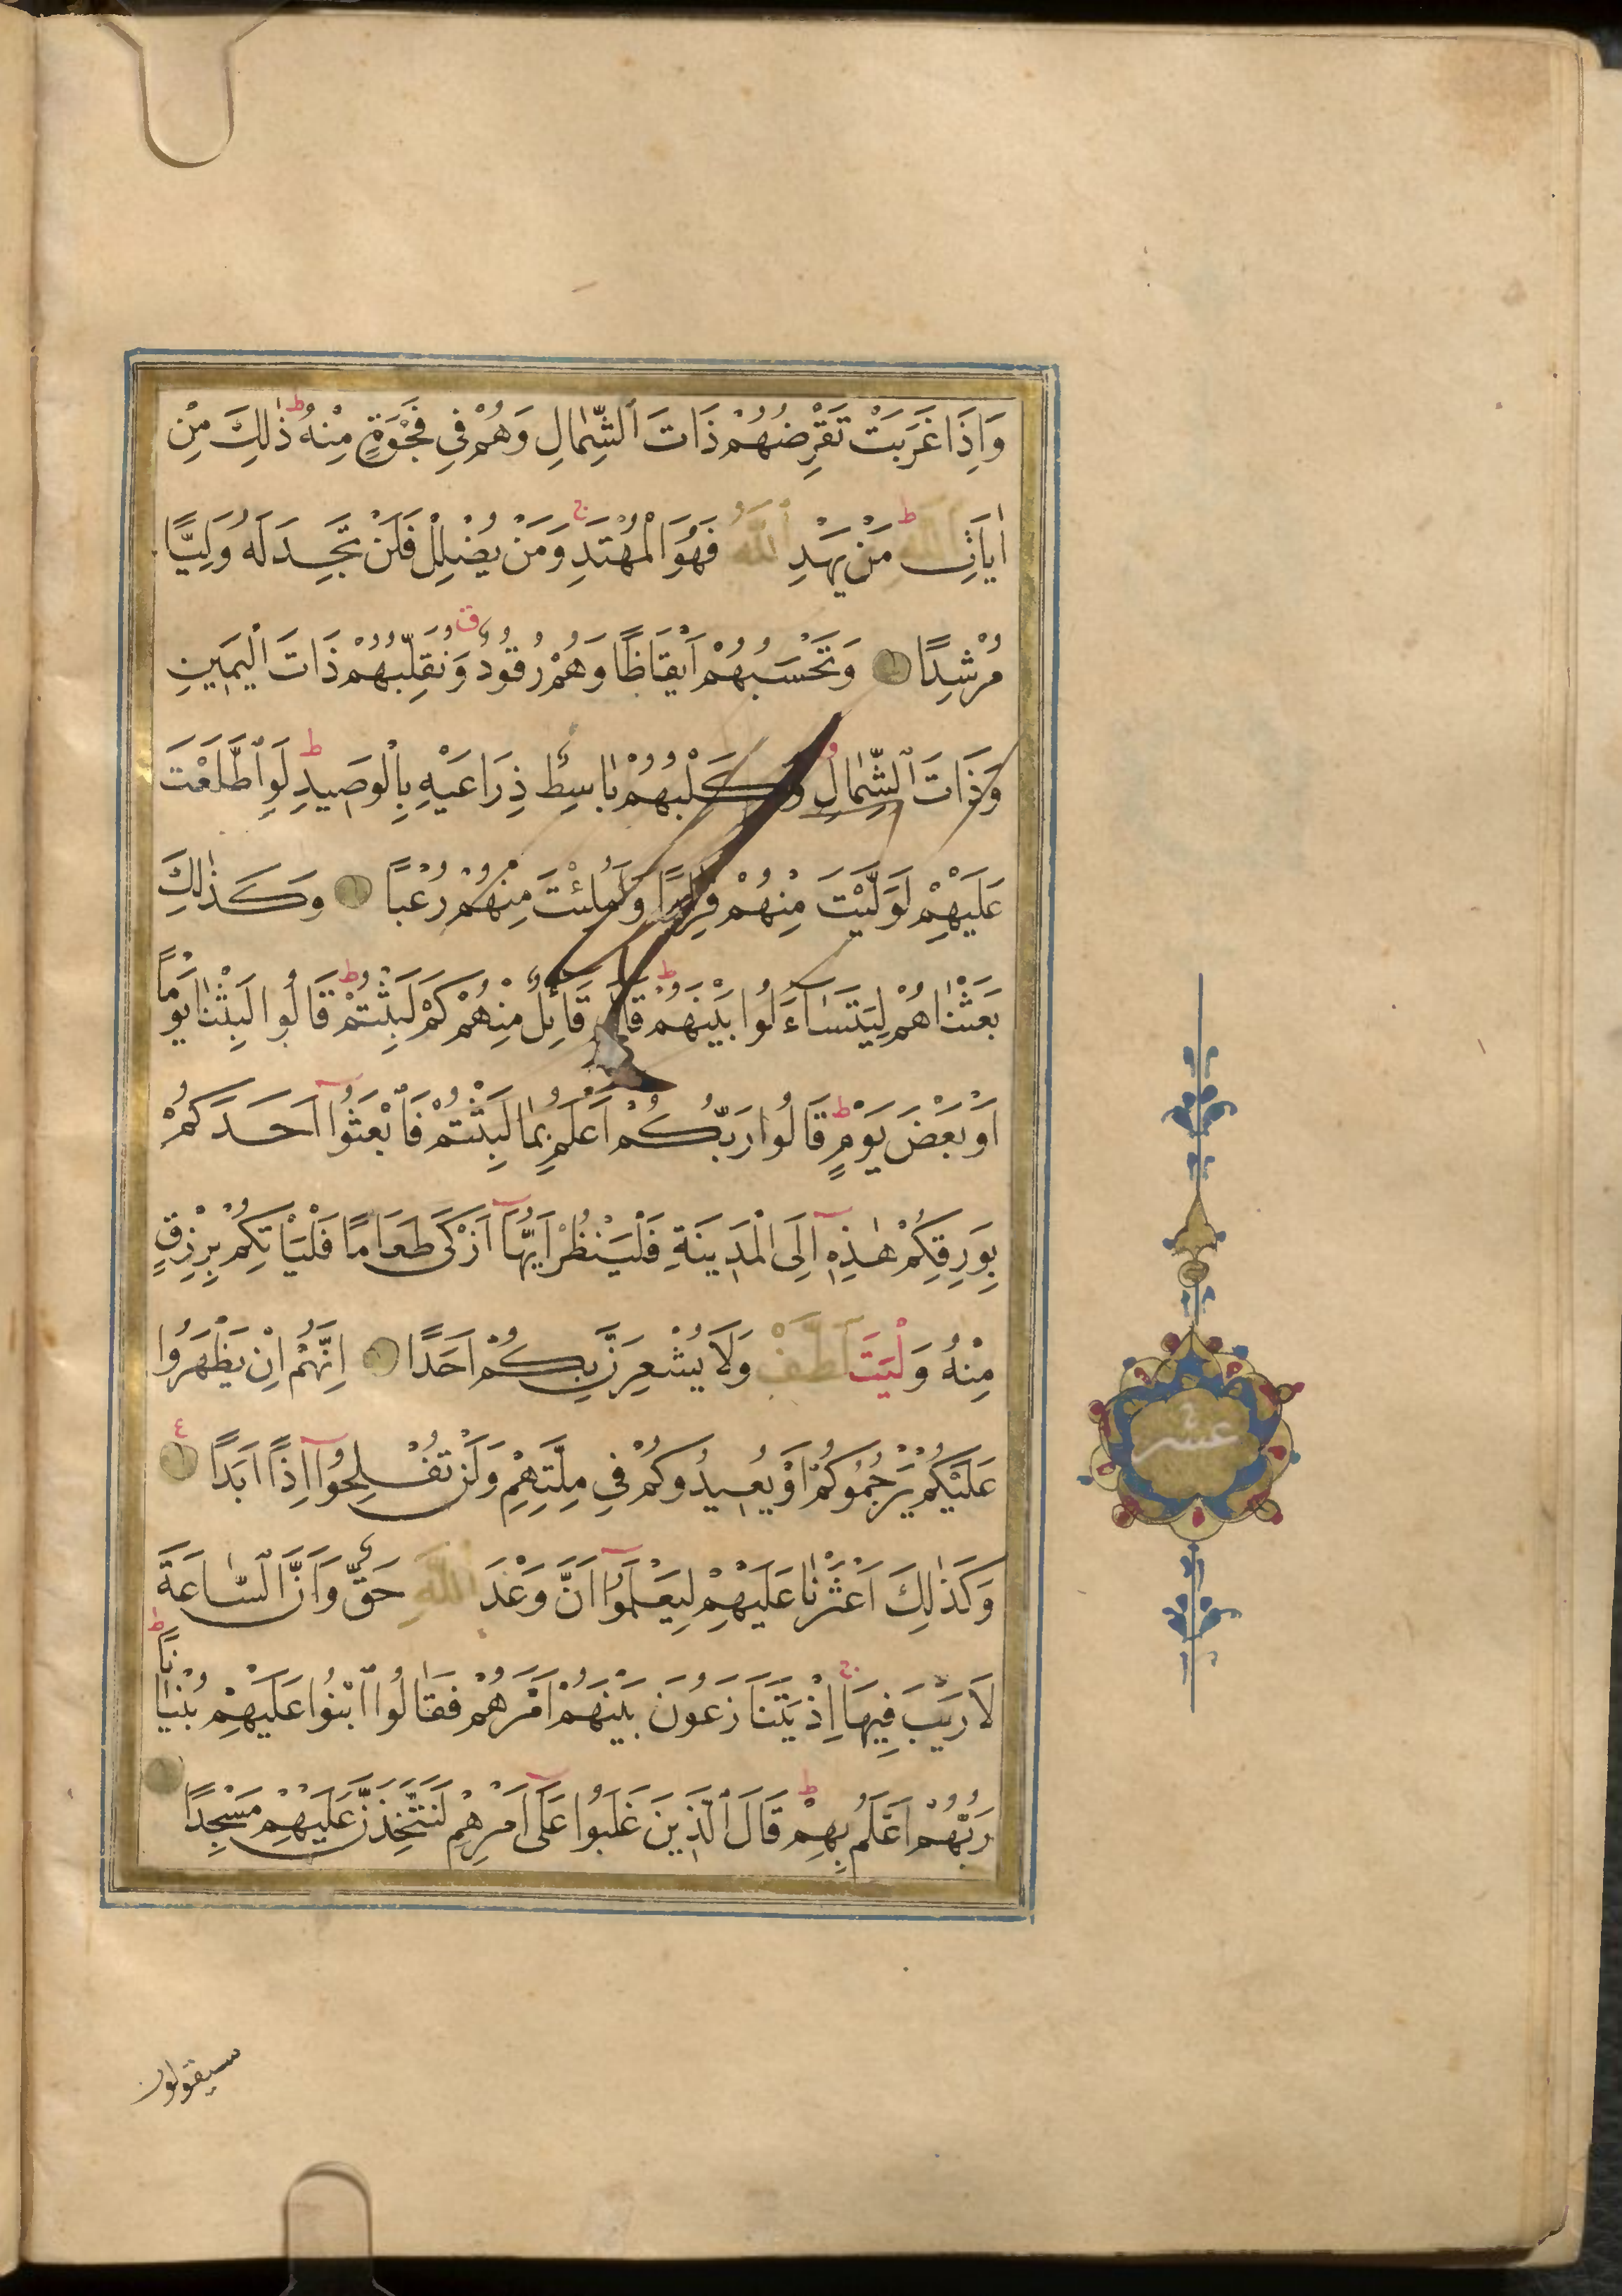 وَاِذَا غَرَبَتْ تَقْرِضُهُمْ ذَاتَ ٱلشِّمَالِ وَهُمْ فِي فَجْوَةٍ مِنْهُ ط ذٰلِكَ مِنْ
اٰيَاتِ ٱللّٰهِ ط مَنْ يَهْدِ ٱللّٰهُ فَهُوَ الْمُهْتَدِ ج وَمَنْ يُضْلِلْ فَلَنْ تَجِدَ لَهُ وَلِيًّا
مُرْشِدًا وَتَحْسَبُهُمْ اَيْقَاظًا وَهُمْ رُقُودٌ ق وَنُقَلِّبُهُمْ ذَاتَ ٱلْيَمِينِ
وَذَاتَ ٱلشِّمَالِ وَكَلْبُهُمْ بَاسِطٌ ذِرَاعَيْهِ بِالْوَصِيدِ ط لَوِ ٱطَّلَعْتَ
عَلَيْهِمْ لَوَلَّيْتَ مِنْهُمْ فِرَارًا وَلَمُلِئْتَ مِنْهُمْ رُعْبًا وَكَذٰلِكَ
بَعَثْنَاهُمْ لِيَتَسَاءَلُوا بَيْنَهُمْ ط قَالَ قَائِلٌ مِنْهُمْ كَمْ لَبِثْتُمْ ط قَالُوا لَبِثْنَا يَوْمًا
اَوْ بَعْضَ يَوْمٍ ط قَالُوا رَبُّكُمْ اَعْلَمُ بِمَا لَبِثْتُمْ فَٱبْعَثُوٓا اَحَدَكُمْ
بِوَرِقِكُمْ هٰذِهِٓ اِلَى الْمَدِينَةِ فَلْيَنْظُرْ اَيُّهَٓا اَزْكٰى طَعَامًا فَلْيَأْتِكُمْ بِرِزْقٍ
مِنْهُ وَلْيَتَلَطَّفْ وَلَا يُشْعِرَنَّ بِكُمْ اَحَدًا اِنَّهُمْ اِنْ يَظْهَرُوا
عَلَيْكُمْ يَرْجُمُوكُمْ اَوْ يُعِيدُوكُمْ فِي مِلَّتِهِمْ وَلَنْ تُفْلِحُوٓا اِذًا اَبَدًا ع
وَكَذٰلِكَ اَعْثَرْنَا عَلَيْهِمْ لِيَعْلَمُوٓا اَنَّ وَعْدَ ٱللّٰهِ حَقٌّ وَاَنَّ ٱلسَّاعَةَ
لَا رَيْبَ فِيهَا ج اِذْ يَتَنَازَعُونَ بَيْنَهُمْ اَمْرَهُمْ فَقَالُوا ٱبْنُوا عَلَيْهِمْ بُنْيَانًا ط
رَبُّهُمْ اَعْلَمُ بِهِمْ ط قَالَ ٱلَّذِينَ غَلَبُوا عَلٰٓى اَمْرِهِمْ لَنَتَّخِذَنَّ عَلَيْهِمْ مَسْجِدًا
عشر
سيقولون